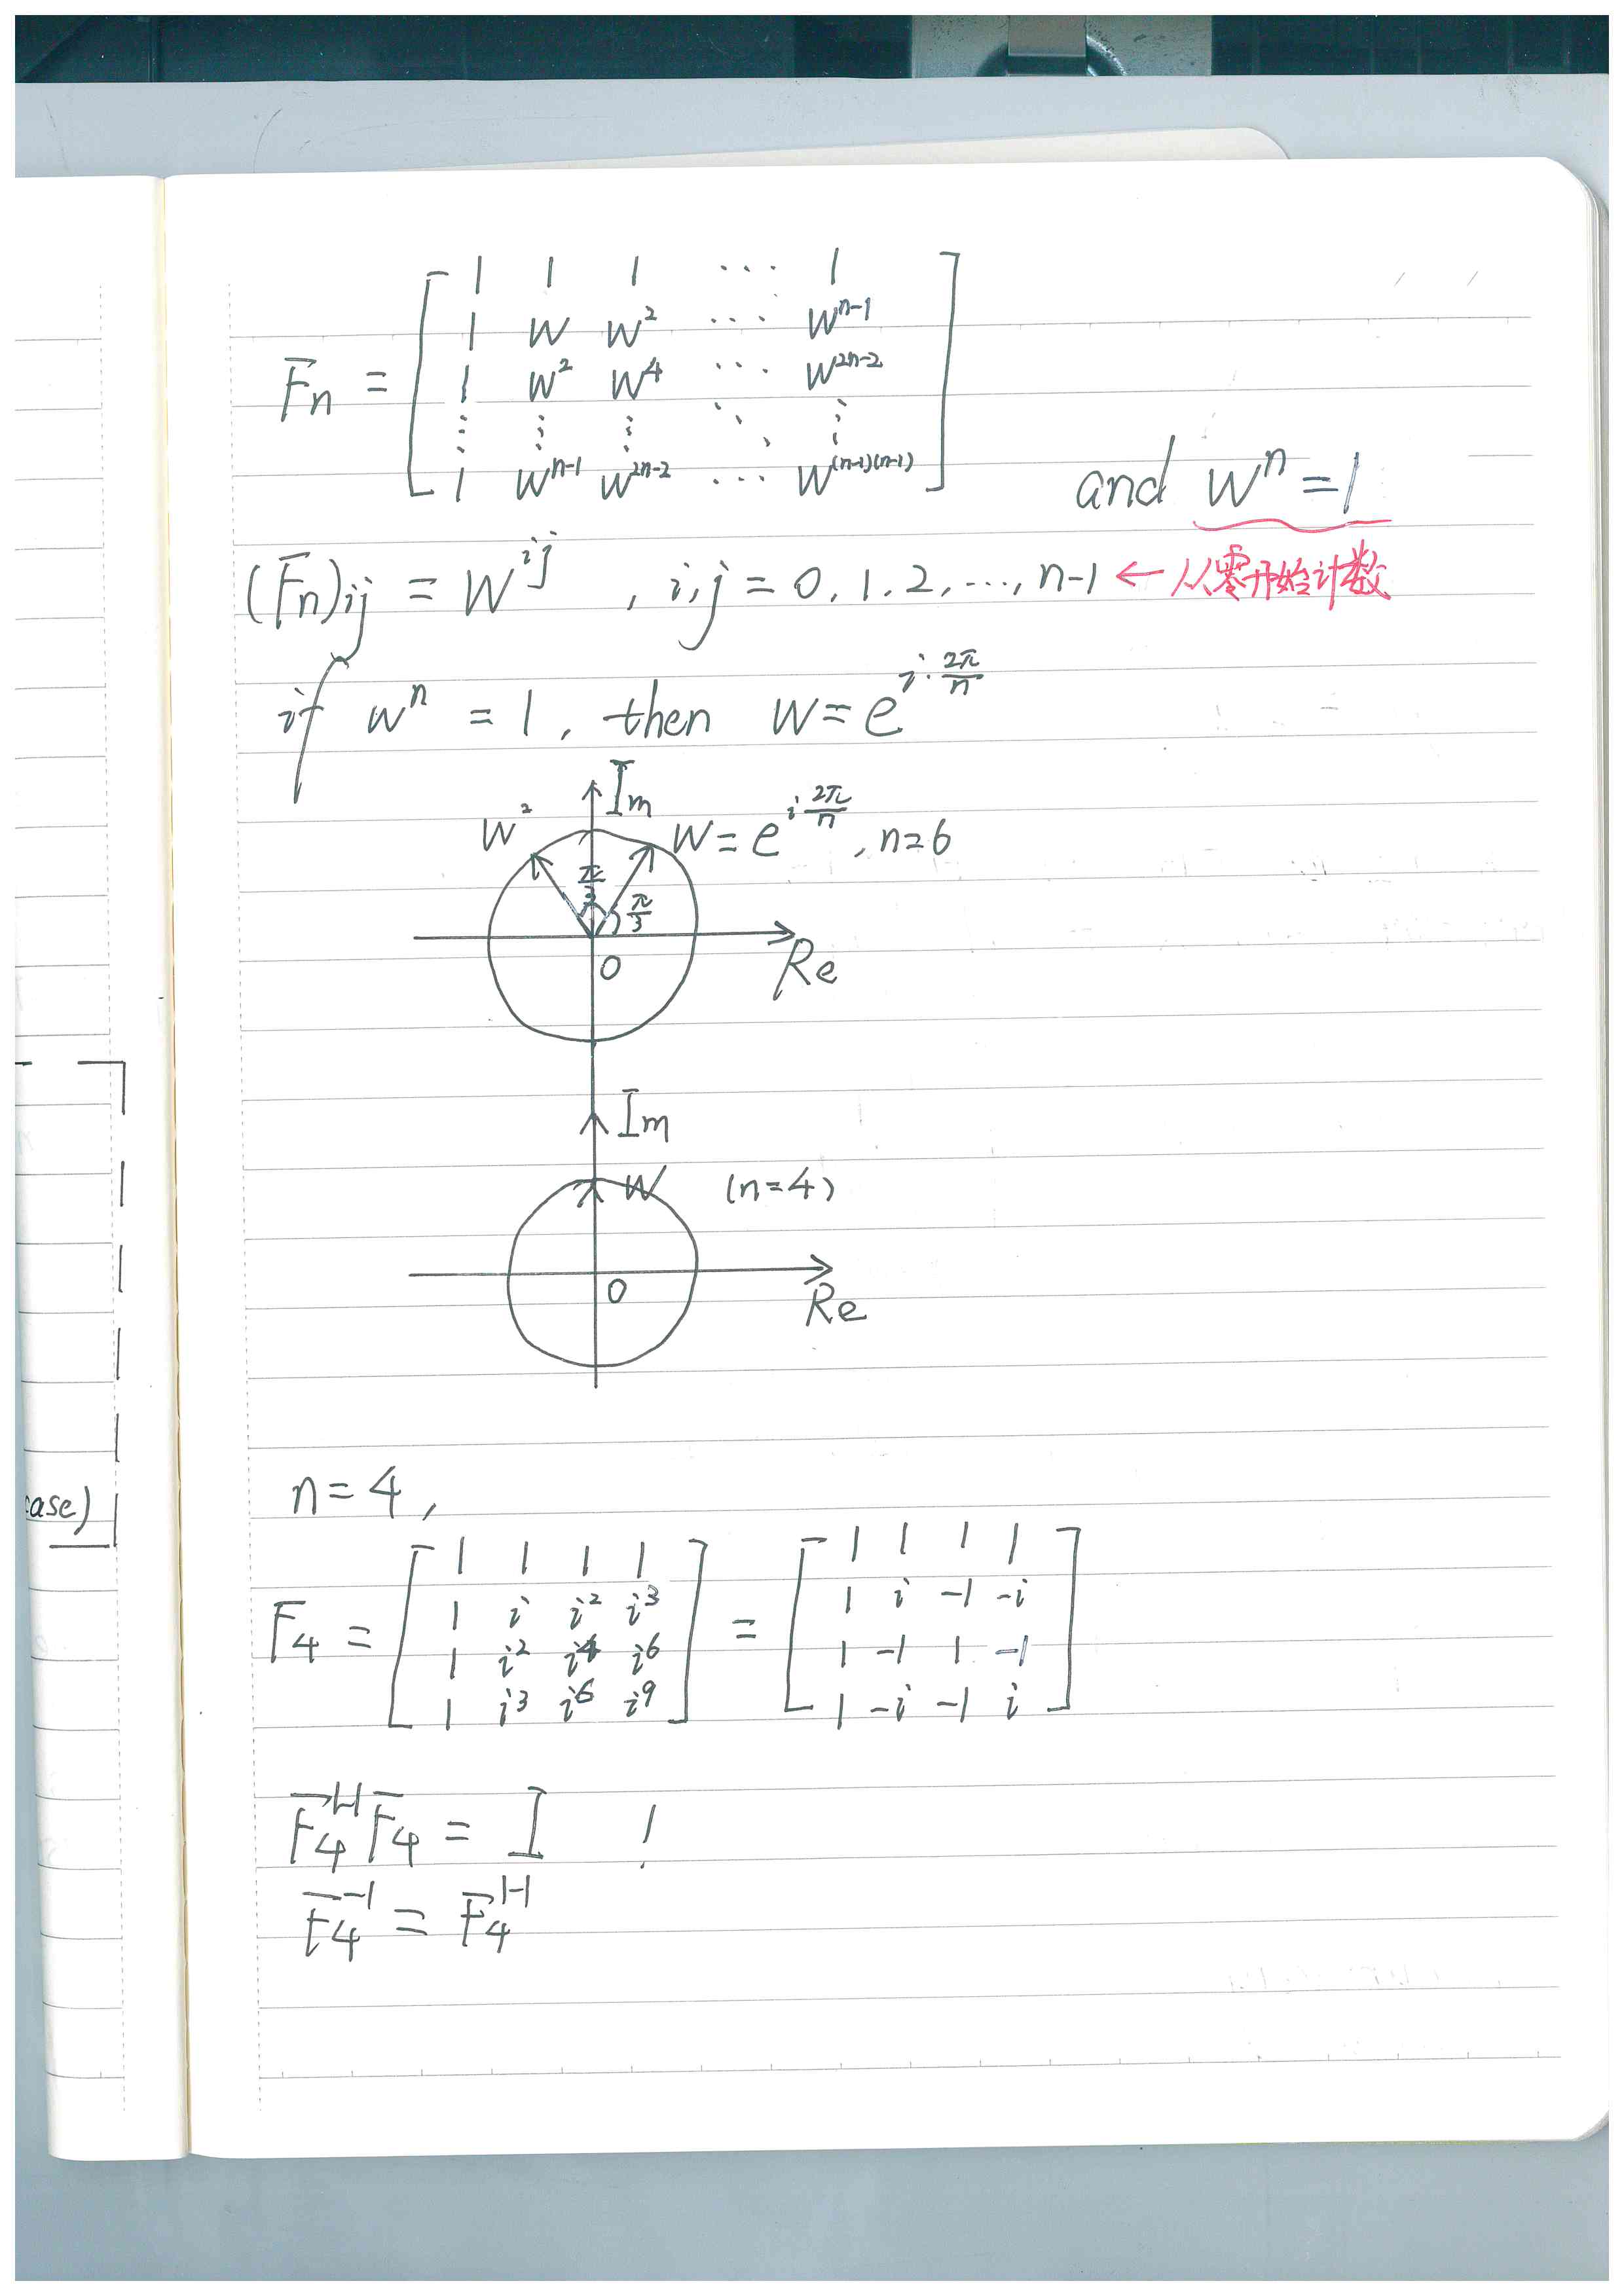 Fn = [ 1 1 1 ⋯ 1
1 W W² ⋯ Wⁿ⁻¹
1 W² W⁴ ⋯ W²ⁿ⁻²
⋮ ⋮ ⋮ ⋱ ⋮
1 Wⁿ⁻¹ W²ⁿ⁻² ⋯ W⁽ⁿ⁻¹⁾⁽ⁿ⁻¹⁾ ]
and Wⁿ = 1
(Fn)ij = W^{ij} , i,j = 0, 1, 2, ⋯, n-1 ← 从零开始计数
if wⁿ = 1, then W = e^{i·2π/n}
Im
W²
W = e^{i 2π/n}, n=6
π/3
π/3
O
Re
Im
W (n=4)
O
Re
n = 4,
case)
F4 = [ 1 1 1 1
1 i i² i³
1 i² i⁴ i⁶
1 i³ i⁶ i⁹ ]
= [ 1 1 1 1
1 i -1 -i
1 -1 1 -1
1 -i -1 i ]
F4^H F4 = I !
F4^{-1} = F4^H